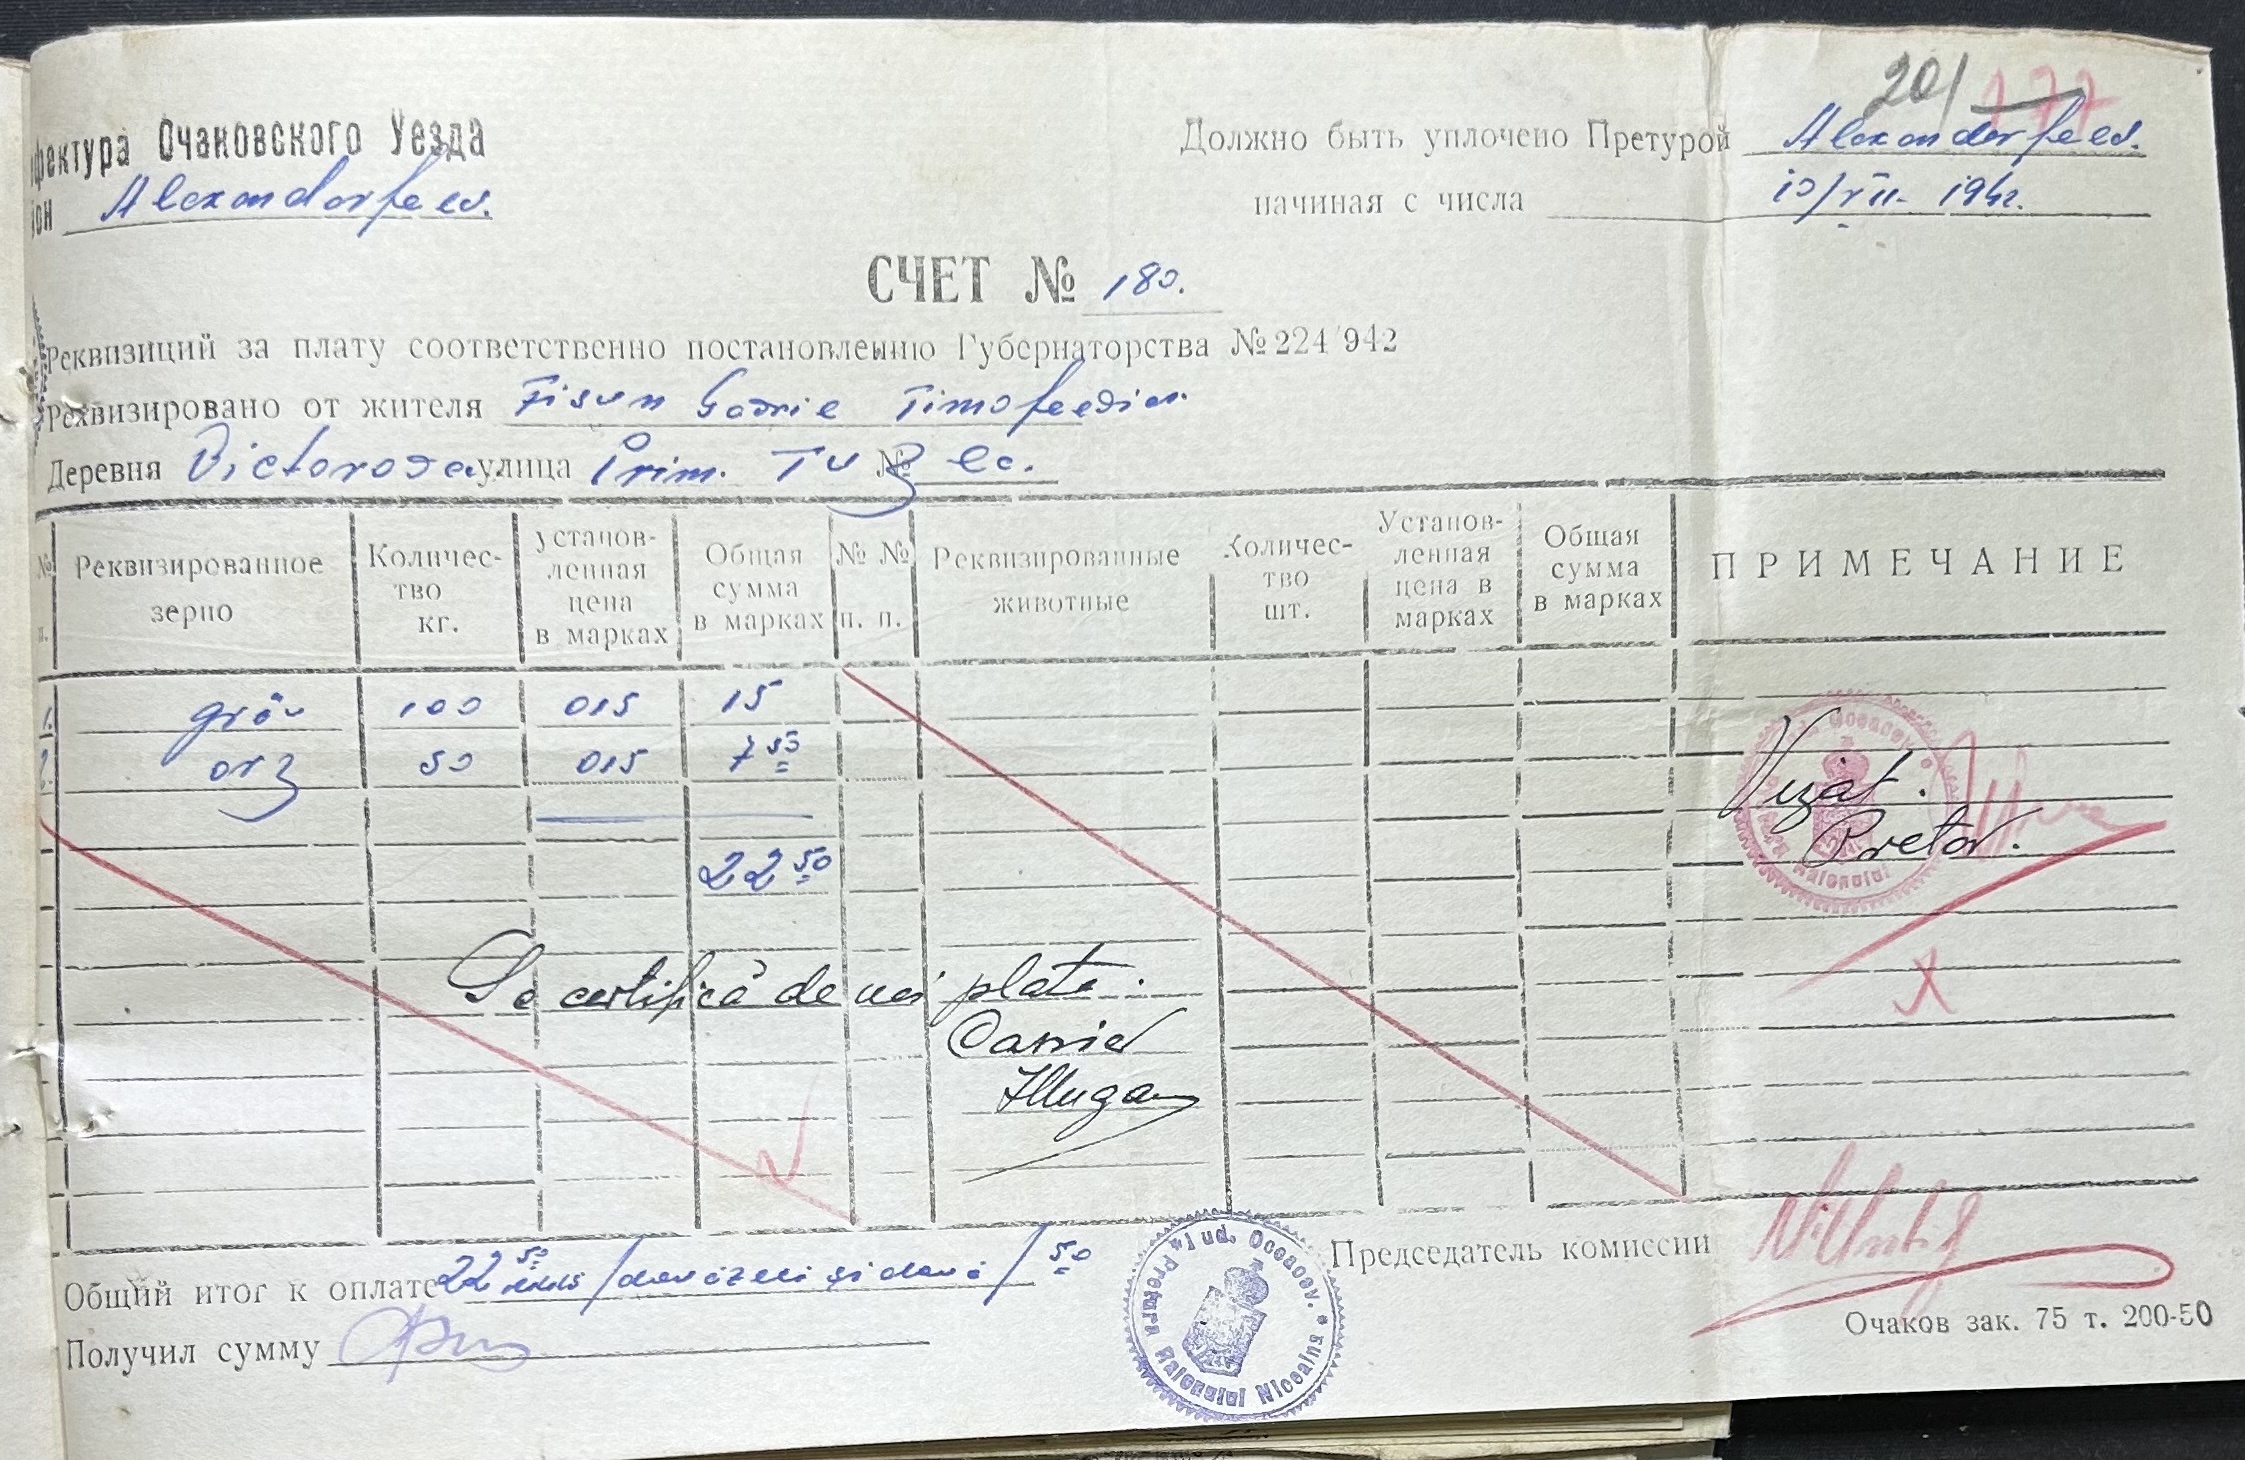 20/ 177
фектура Очаковского Уезда
йон Alexandorfeld.
Должно быть уплочено Претурой Alexandorfeld.
начиная с числа 10/VII. 1942.
СЧЕТ № 180.
Реквизиций за плату соответственно постановлению Губернаторства № 224/942
Реквизировано от жителя Fisun Gavril Timofeevici.
Деревня Victorovca улица Prim. Tuzlec.
№ п.
Реквизированное зерно
Количес-тво кг.
установ-ленная цена в марках
Общая сумма в марках
№ № п. п.
Реквизированные животные
Количес-тво шт.
Установ-ленная цена в марках
Общая сумма в марках
ПРИМЕЧАНИЕ
1. grâu 100 015 15
2. orz 50 015 7 50
22 50
Vizat.
Pretor.
Se certifică de noi plata.
Casier
Общий итог к оплате 22 50 /două zeci și două/ 50
Председатель комиссии
Получил сумму
Jud. Oceacov. * Pretura Raionului Nicoaina *
Очаков зак. 75 т. 200-50